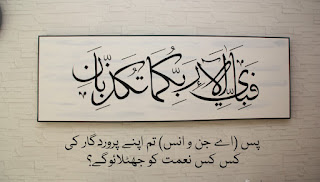 فَبِأَيِّ آلَاءِ رَبِّكُمَا تُكَذِّبَانِ
پس (اے جن و انس) تم اپنے پروردگار کی
کس کس نعمت کو جھٹلاؤگے؟